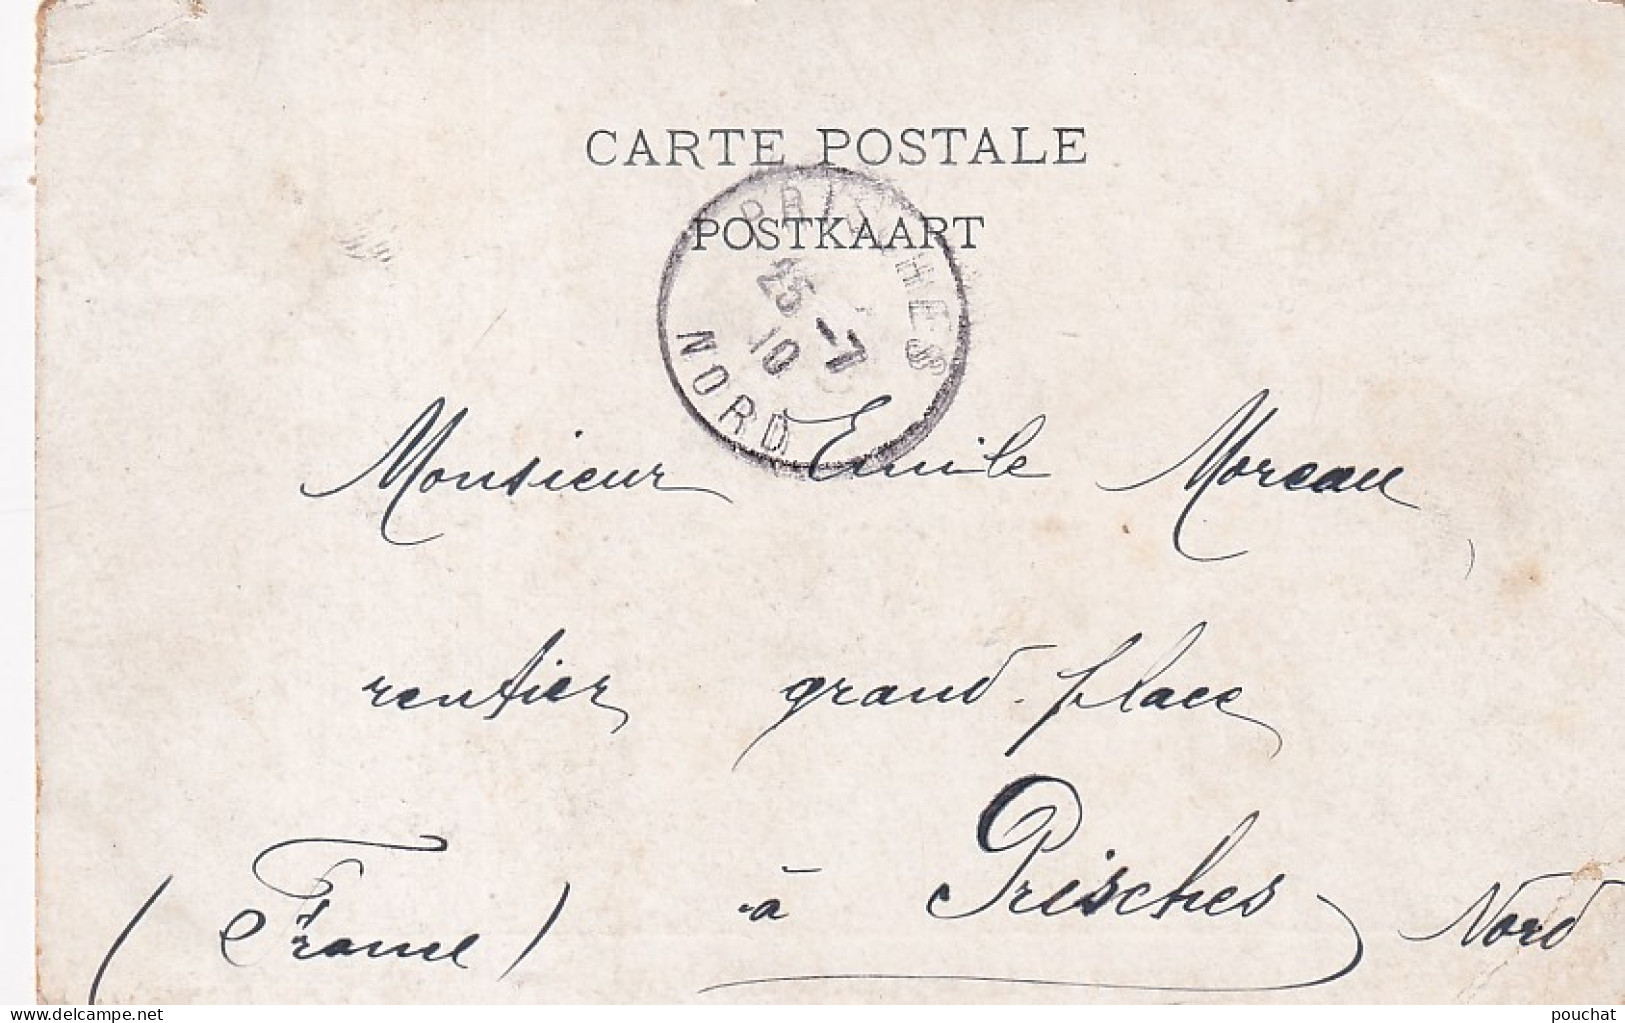 CARTE POSTALE
POSTKAART
PRISCHES
25 -7
10
NORD
Monsieur Emile Moreau,
rentier grand place
à Prisches Nord
(France)
delcampe.net
pouchat